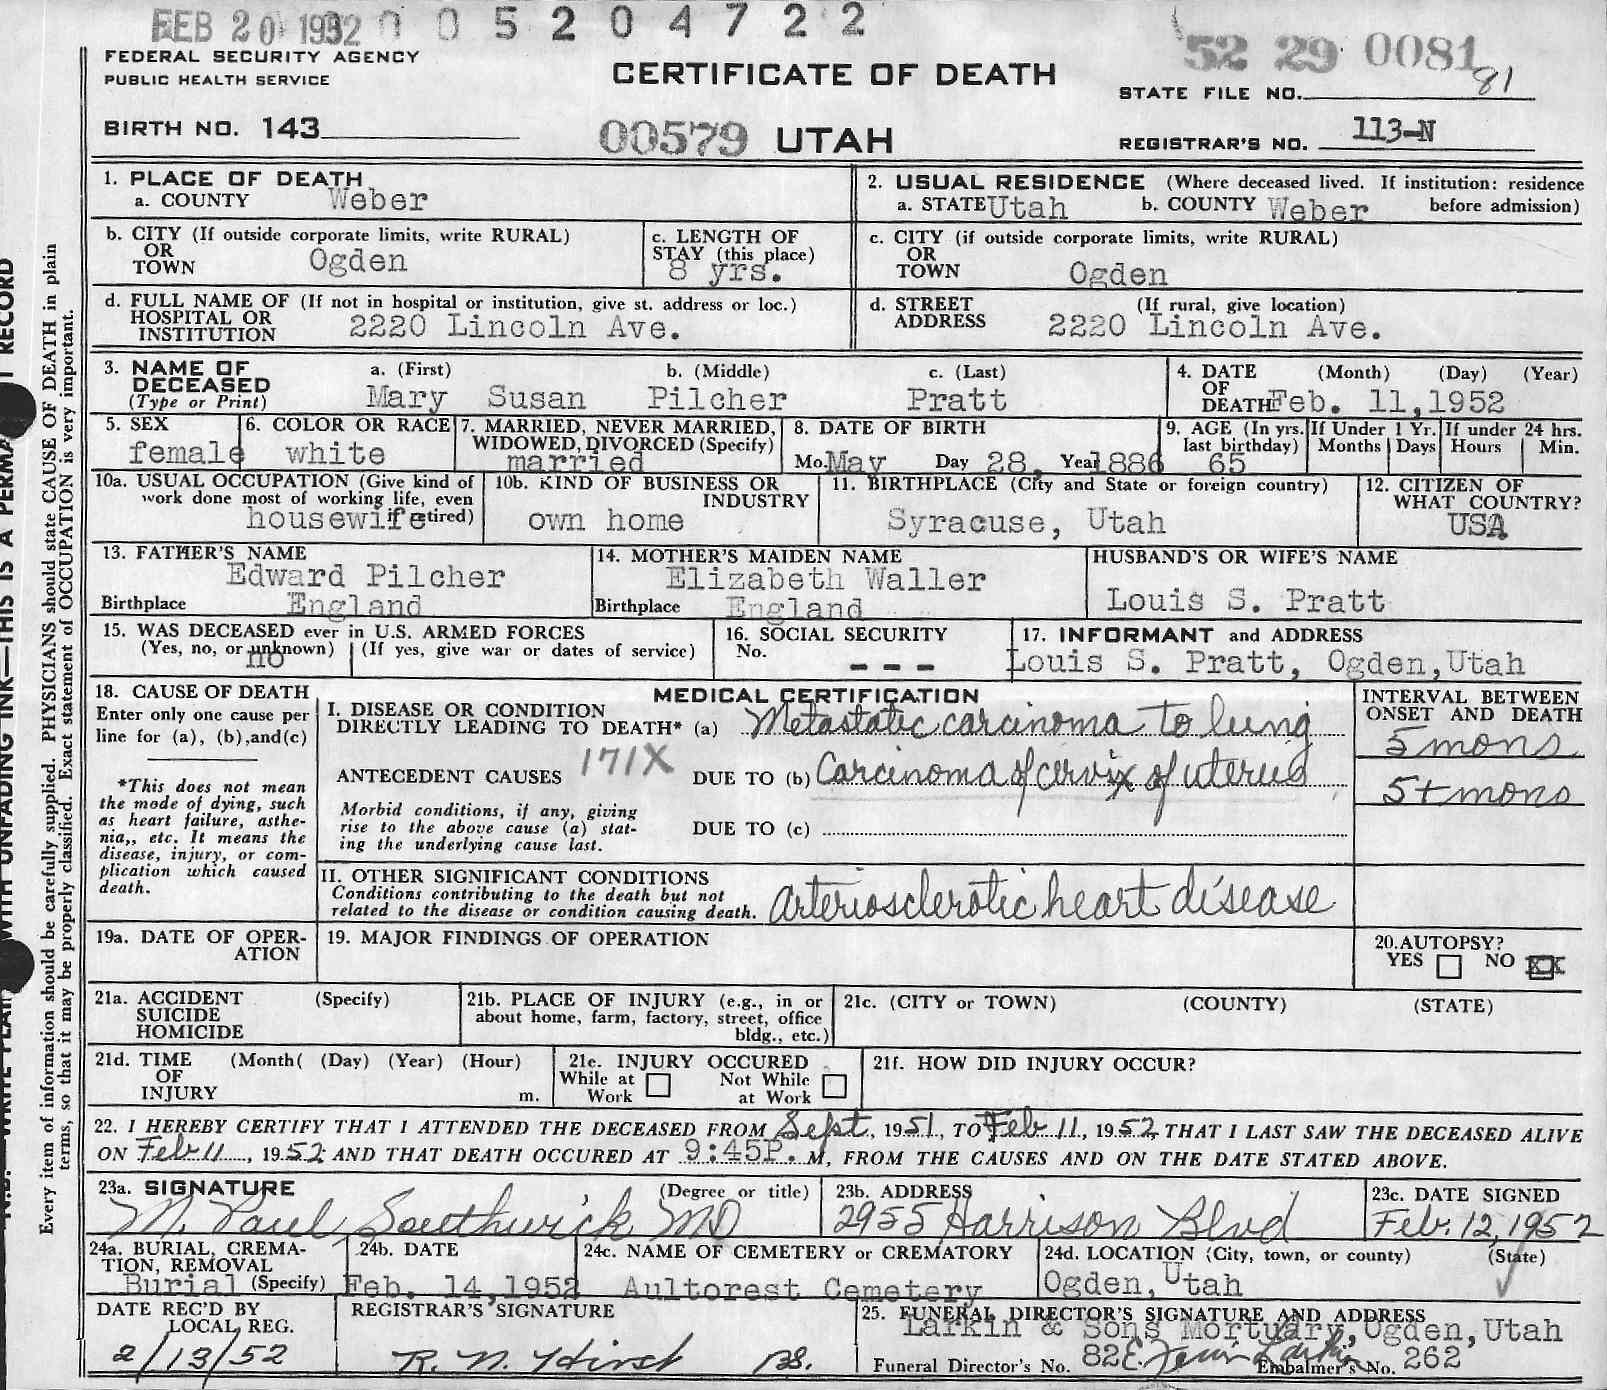 FEB 20 1952 0 0 5 2 0 4 7 2 2
52 29 0081
FEDERAL SECURITY AGENCY
PUBLIC HEALTH SERVICE
CERTIFICATE OF DEATH
STATE FILE NO. 81
BIRTH NO. 143
00579 UTAH
REGISTRAR'S NO. 113-N
1. PLACE OF DEATH
a. COUNTY Weber
2. USUAL RESIDENCE (Where deceased lived. If institution: residence before admission)
a. STATE Utah b. COUNTY Weber
b. CITY (If outside corporate limits, write RURAL)
OR
TOWN Ogden
c. LENGTH OF
STAY (this place)
8 yrs.
c. CITY (if outside corporate limits, write RURAL)
OR
TOWN Ogden
d. FULL NAME OF (If not in hospital or institution, give st. address or loc.)
HOSPITAL OR
INSTITUTION 2220 Lincoln Ave.
d. STREET (If rural, give location)
ADDRESS 2220 Lincoln Ave.
3. NAME OF
DECEASED
(Type or Print)
a. (First) b. (Middle) c. (Last)
Mary Susan Pilcher Pratt
4. DATE (Month) (Day) (Year)
OF
DEATH Feb. 11, 1952
5. SEX
female
6. COLOR OR RACE
white
7. MARRIED, NEVER MARRIED,
WIDOWED, DIVORCED (Specify)
married
8. DATE OF BIRTH
Mo. May Day 28, Year 1886
9. AGE (In yrs. last birthday)
65
If Under 1 Yr.
Months Days
If under 24 hrs.
Hours Min.
10a. USUAL OCCUPATION (Give kind of
work done most of working life, even
housewife if retired)
10b. KIND OF BUSINESS OR
INDUSTRY
own home
11. BIRTHPLACE (City and State or foreign country)
Syracuse, Utah
12. CITIZEN OF
WHAT COUNTRY?
USA
13. FATHER'S NAME
Edward Pilcher
Birthplace England
14. MOTHER'S MAIDEN NAME
Elizabeth Waller
Birthplace England
HUSBAND'S OR WIFE'S NAME
Louis S. Pratt
15. WAS DECEASED ever in U.S. ARMED FORCES
(Yes, no, or unknown) (If yes, give war or dates of service)
no
16. SOCIAL SECURITY
No. - - -
17. INFORMANT and ADDRESS
Louis S. Pratt, Ogden, Utah
18. CAUSE OF DEATH
Enter only one cause per
line for (a), (b), and (c)
*This does not mean
the mode of dying, such
as heart failure, asthe-
nia,, etc. It means the
disease, injury, or com-
plication which caused
death.
MEDICAL CERTIFICATION
I. DISEASE OR CONDITION
DIRECTLY LEADING TO DEATH* (a) Metastatic carcinoma to lung
ANTECEDENT CAUSES 171X DUE TO (b) Carcinoma of cervix of uterus
Morbid conditions, if any, giving
rise to the above cause (a) stat-
ing the underlying cause last.
DUE TO (c)
INTERVAL BETWEEN
ONSET AND DEATH
5 mons
5+ mons
II. OTHER SIGNIFICANT CONDITIONS
Conditions contributing to the death but not
related to the disease or condition causing death. arteriosclerotic heart disease
19a. DATE OF OPER-
ATION
19. MAJOR FINDINGS OF OPERATION
20. AUTOPSY?
YES NO XX
21a. ACCIDENT (Specify)
SUICIDE
HOMICIDE
21b. PLACE OF INJURY (e.g., in or
about home, farm, factory, street, office
bldg., etc.)
21c. (CITY or TOWN) (COUNTY) (STATE)
21d. TIME (Month( (Day) (Year) (Hour)
OF
INJURY m.
21e. INJURY OCCURED
While at Work Not While at Work
21f. HOW DID INJURY OCCUR?
22. I HEREBY CERTIFY THAT I ATTENDED THE DECEASED FROM Sept, 1951, TO Feb 11, 1952, THAT I LAST SAW THE DECEASED ALIVE
ON Feb 11, 1952 AND THAT DEATH OCCURED AT 9:45P. M, FROM THE CAUSES AND ON THE DATE STATED ABOVE.
23a. SIGNATURE (Degree or title)
M. Paul Southwick MD
23b. ADDRESS
2955 Harrison Blvd
23c. DATE SIGNED
Feb. 12, 1952
24a. BURIAL, CREMA-
TION, REMOVAL
Burial (Specify)
24b. DATE
Feb. 14, 1952
24c. NAME OF CEMETERY or CREMATORY
Aultorest Cemetery
24d. LOCATION (City, town, or county) (State)
Ogden, Utah
DATE REC'D BY
LOCAL REG.
2/13/52
REGISTRAR'S SIGNATURE
R. N. Hirst BS.
25. FUNERAL DIRECTOR'S SIGNATURE AND ADDRESS
Larkin & Sons Mortuary, Ogden, Utah
Funeral Director's No. 82 Larkin Embalmer's No. 262
Every item of information should be carefully supplied. PHYSICIANS should state CAUSE OF DEATH in plain
terms, so that it may be properly classified. Exact statement of OCCUPATION is very important.
WITH UNFADING INK—THIS IS A RECORD